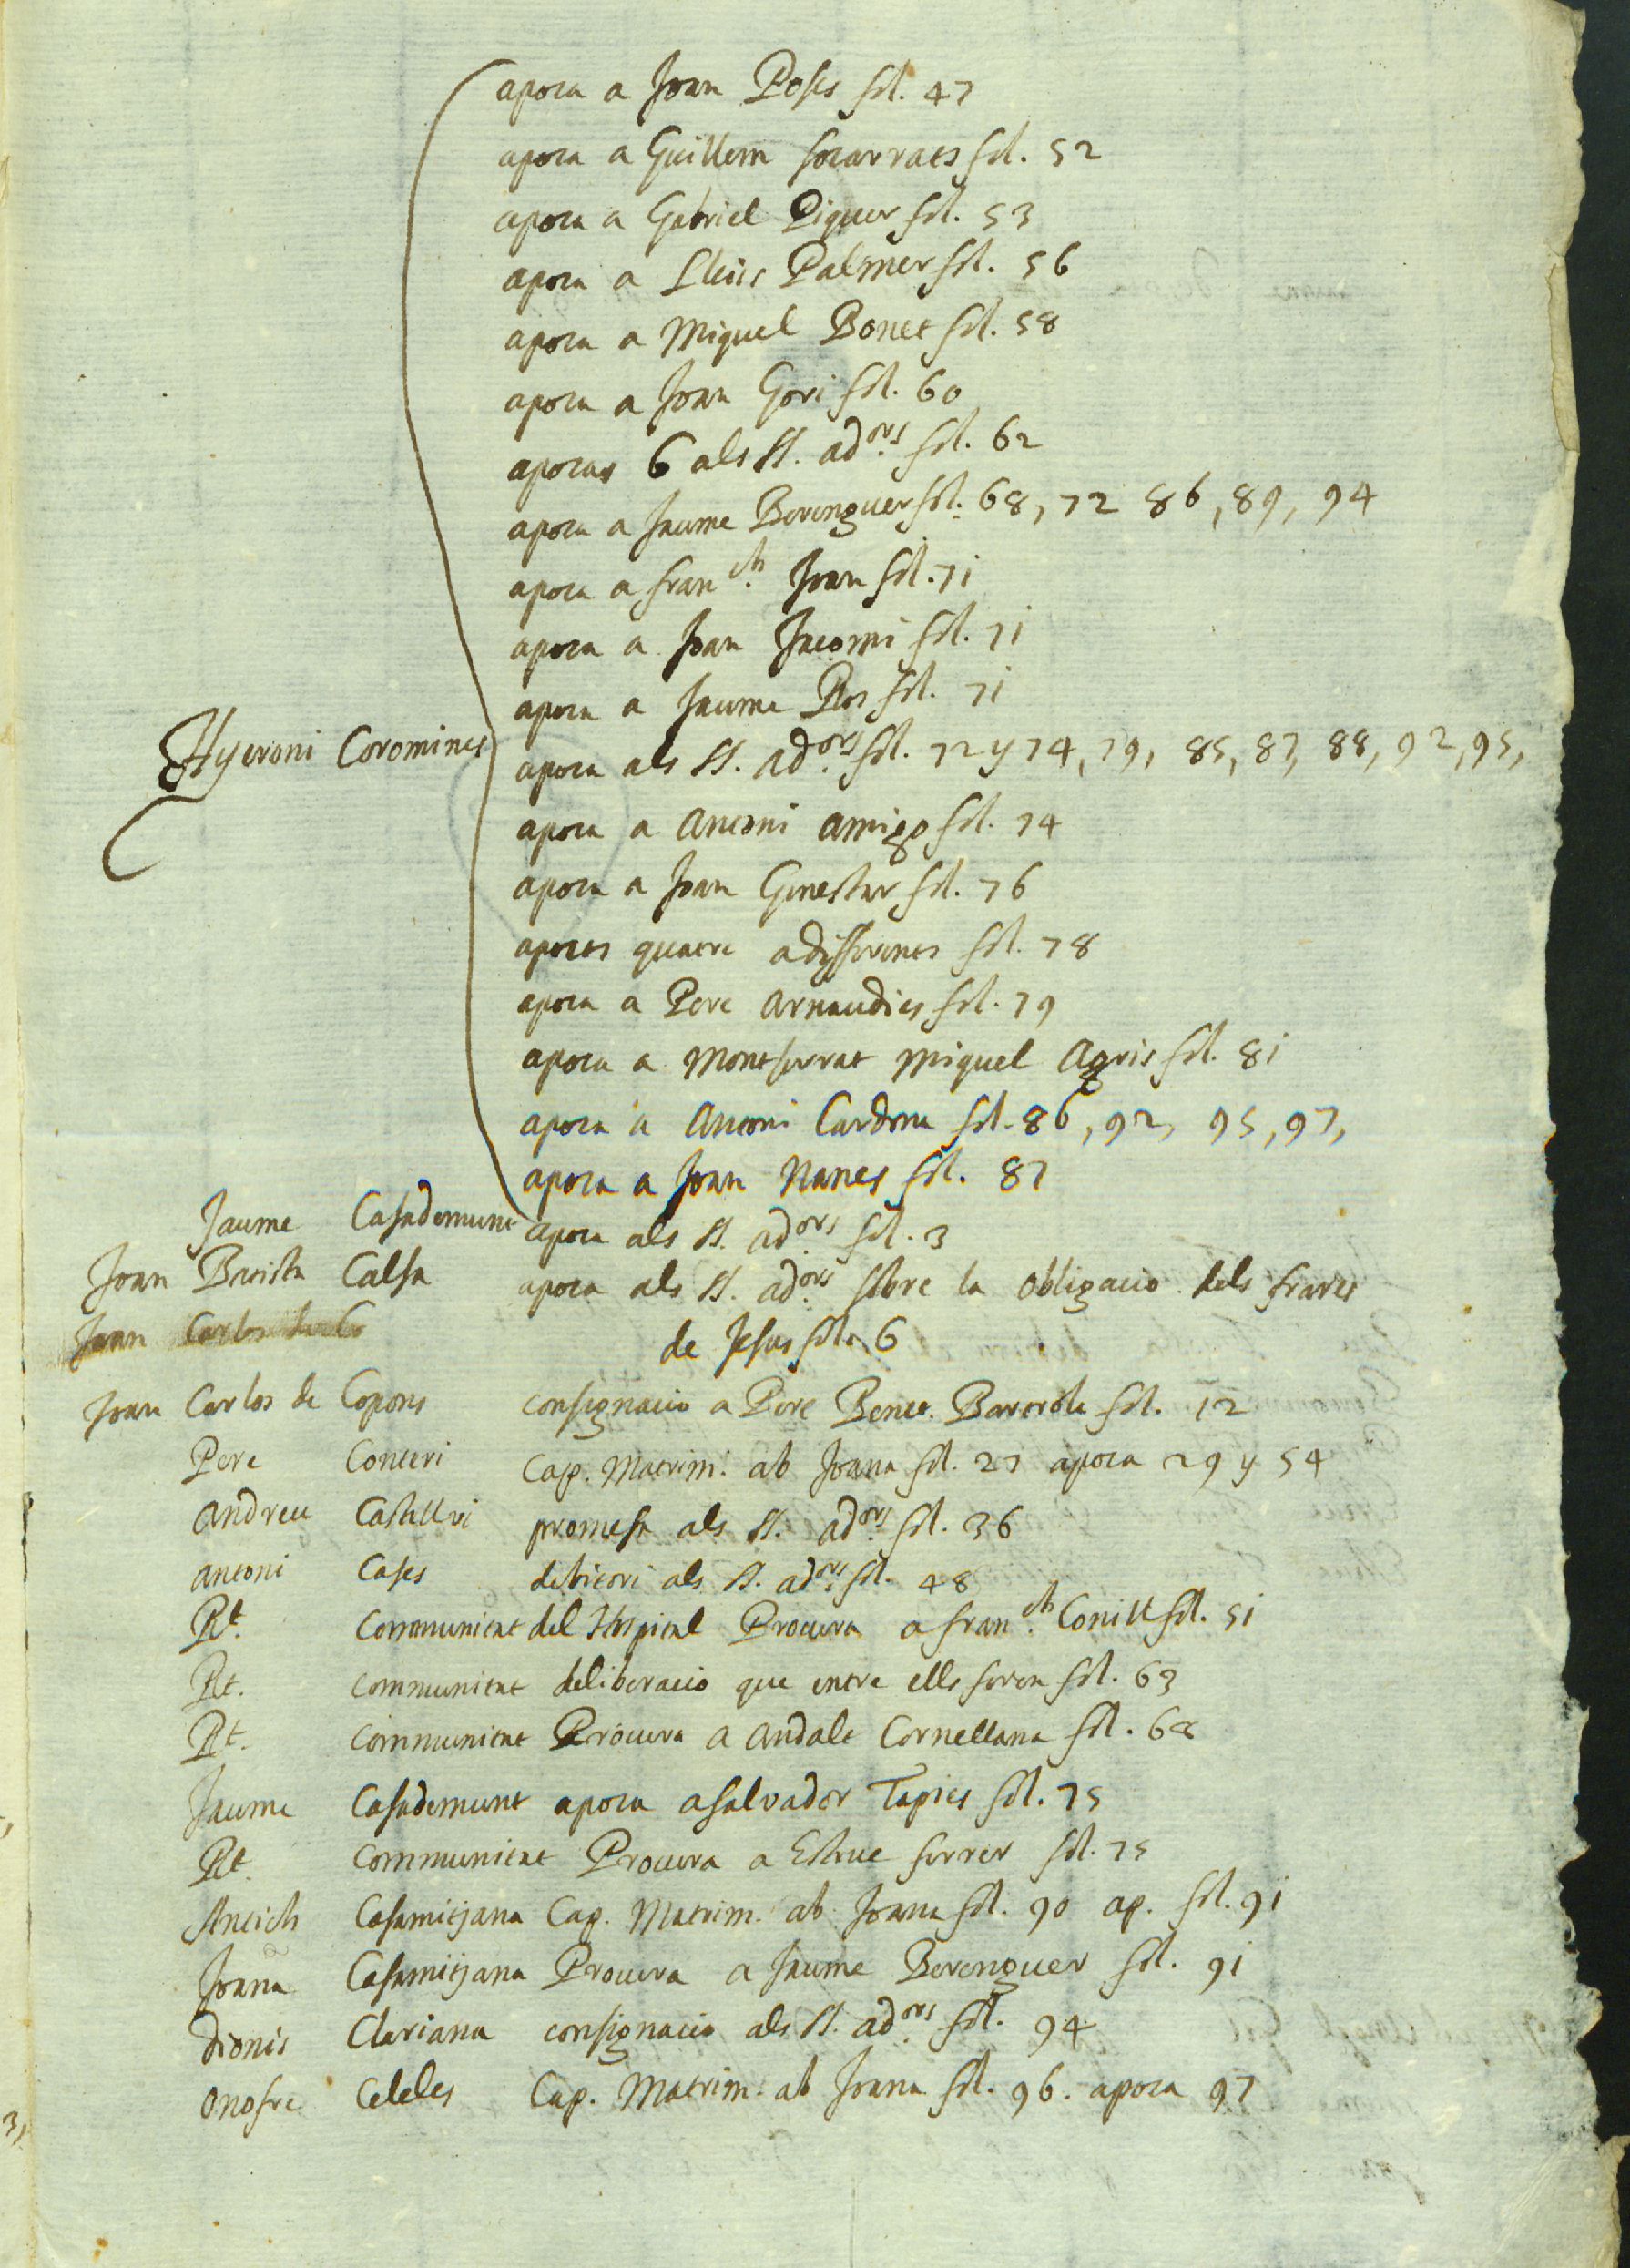 apoca a Joan Poses fol. 47
apoca a Guillem socarrats fol. 52
apoca a Gabriel Piquer fol. 53
apoca a Lluis Palmer fol. 56
apoca a Miquel Bonet fol. 58
apoca a Joan Gori fol. 60
apocas 6 als SS. ad.ors fol. 62
apoca a Jaume Berenguer fol. 68, 72 86, 89, 94
apoca a fran.ch Joan fol. 71
apoca a Joan Jacomi fol. 71
apoca a Jaume Ros fol. 71
Hyeroni Coromines apoca als SS. ad.ors fol. 72 y 74, 79, 85, 87, 88, 92, 95,
apoca a Antoni amigo fol. 74
apoca a Joan Ginestar fol. 76
apoces quatre a differents fol. 78
apoca a Pere Arnaudies fol. 79
apoca a Montserrat Miquel Agris fol. 81
apoca a Antoni Cardona fol. 86, 92, 95, 97,
apoca a Joan Nanes fol. 87
Jaume Casademunt apoca als SS. ad.ors fol. 3
Joan Batista Calsa apoca als SS. ad.ors sobre la obligacio dels frares
de Jesus fol. 6
Joan Carlos
Joan Carlos de Copons consignacio a Pere Benet Barcrola fol. 12
Pere Conteri Cap. Matrim. ab Joana fol. 27 apoca 29 y 54
Andreu Castellvi promesa als SS. ad.ors fol. 36
Antoni Cases debitori als SS. ad.ors fol. 48
Rt. Communitat del Hospital Procura a fran.ch Conill fol. 51
Rt. communitat deliberacio que entre ells feren fol. 63
Rt. communitat Procura a Andalt Cornellana fol. 68
Jaume Casademunt apoca a salvador Tapies fol. 75
Rt. communitat Procura a Esteve ferrer fol. 75
Antich Casamitjana Cap. Matrim. ab Joana fol. 90 ap. fol. 91
Joana Casamitjana Procura a Jaume Berenguer fol. 91
Dionis Clariana consignacio als SS. ad.ors fol. 94
Onofre Celeles Cap. Matrim. ab Joana fol. 96. apoca 97